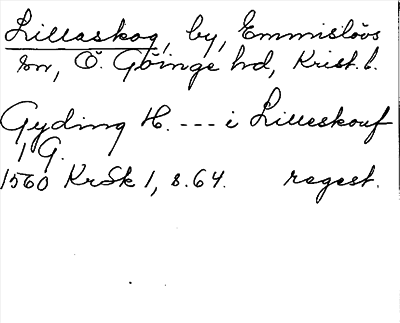 Lillaskog, by, Emmislövs
sn, Ö. Göinge hd, Krist. l.
Gyding H. --- i Lilleskouf
1 G.
1560 KrSk 1, s. 64. regest.